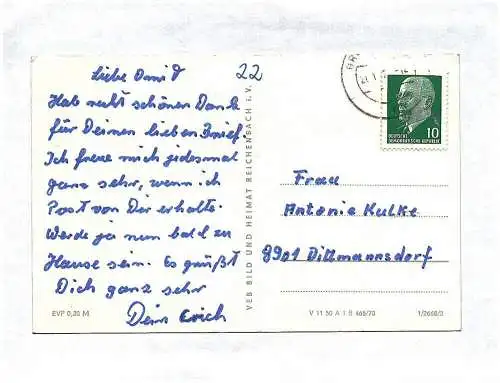 Liebe Omi
22
Hab recht schönen Dank
für Deinen lieben Brief.
Ich freue mich jedesmal
ganz sehr, wenn ich
Post von Dir erhalte.
Werde ja nun bald zu
Hause sein. Es grüßt
Dich ganz sehr
Dein Erich
EVP 0,20 M
VEB BILD UND HEIMAT REICHENBACH i. V.
10
DEUTSCHE
DEMOKRATISCHE REPUBLIK
Frau
Antonie Kulke
8901 Dittmannsdorf
V 11 50 A 1 B 468/70
1/2668/3